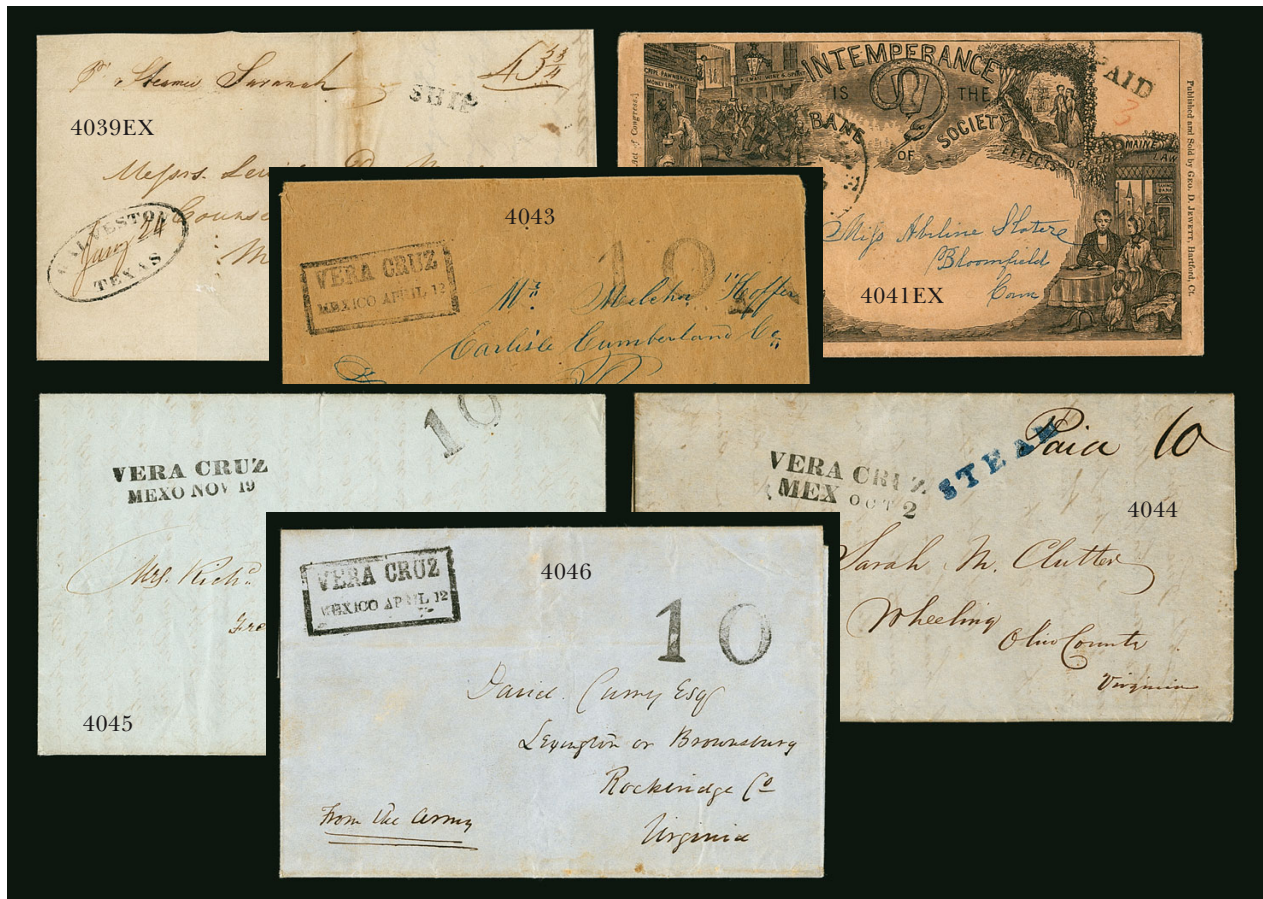 Pr Steamer Savanah
43¾
SHIP
4039EX
Messrs.
GALVESTON
Jany 24
TEXAS
INTEMPERANCE
IS THE
BANE
OF SOCIETY
EFFECTS OF THE MAINE LAW
PAID
3
Act of Congress.]
Published and Sold by GEO. D. JEWETT, Hartford, Ct.
Miss Abiline Slater
Bloomfield
Conn
4041EX
4043
VERA CRUZ
MEXICO APRIL 12
10
Mr. Melcher Hoffer
Carlisle Cumberland Co
VERA CRUZ
MEXO NOV 19
10
Mrs. Richd
4045
VERA CRUZ
MEX OCT 2
STEAM
Paid 10
4044
Sarah M. Clutter
Wheeling
Ohio County
Virginia
VERA CRUZ
MEXICO APRIL 12
4046
10
David Curry Esqr
Lexington or Brownsburg
Rockbridge Co
Virginia
From the Army